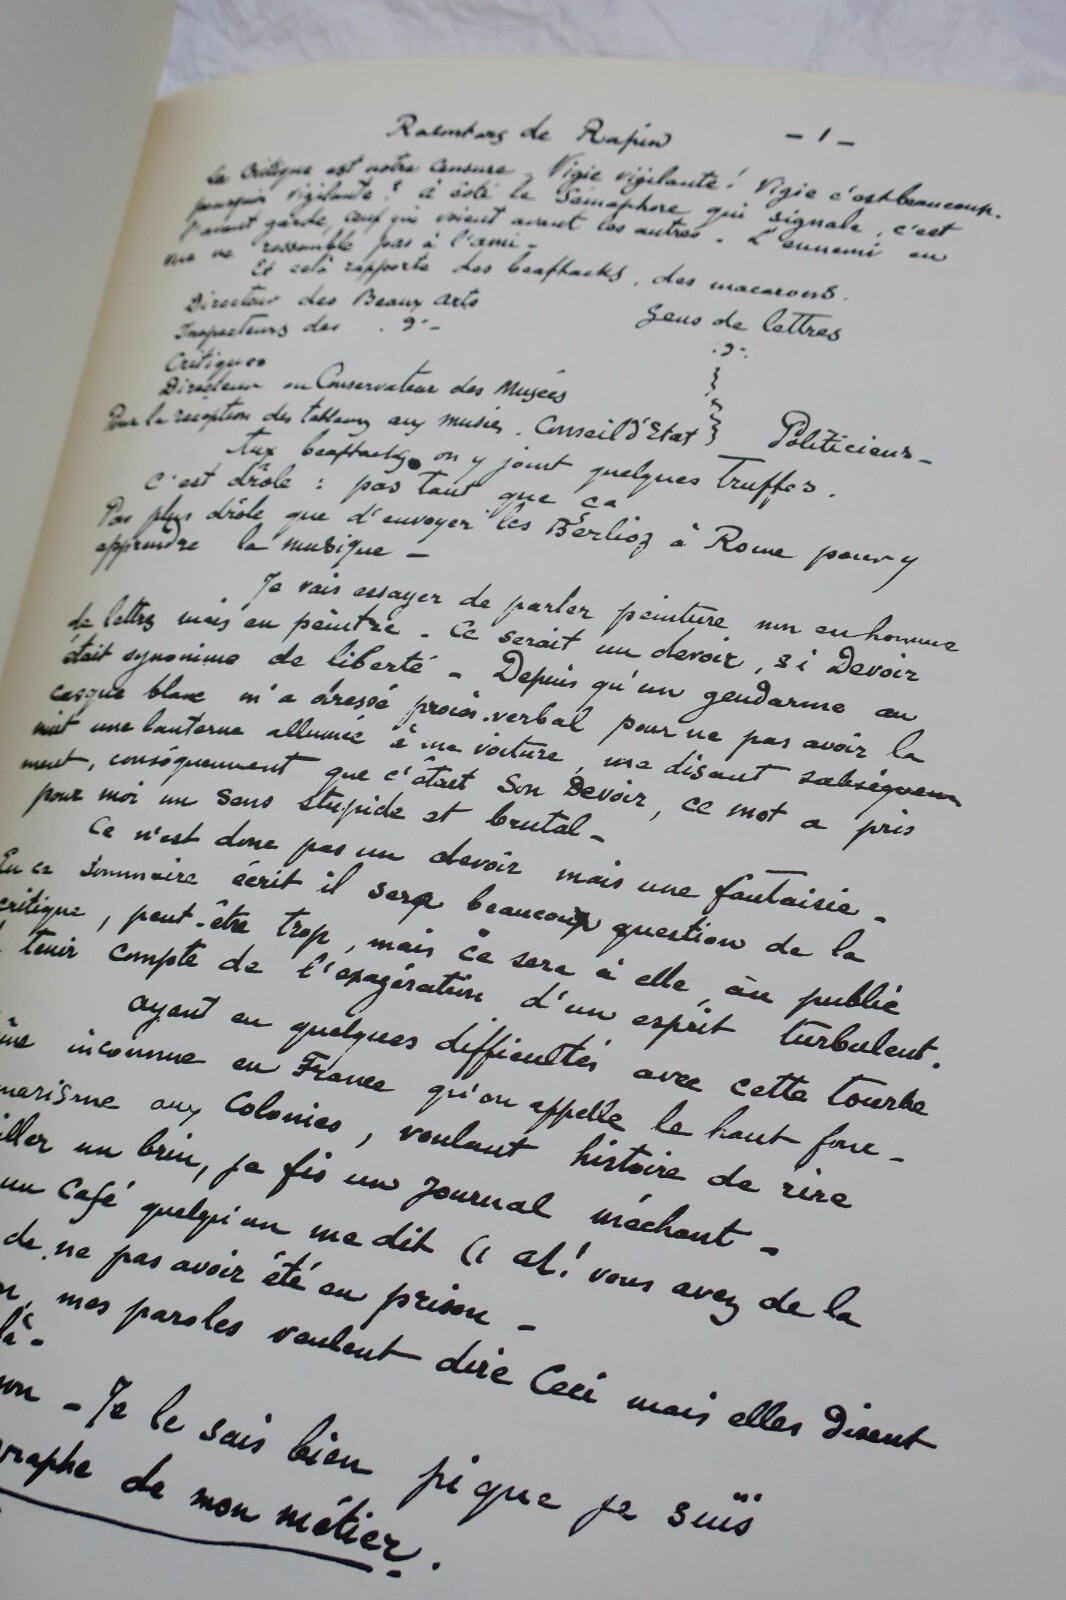 Racontars de Rapin - 1 -
La Critique est notre Censure. Vigie vigilante! Vigie c'est beaucoup.
pourquoi vigilante? à côté le Sémaphore qui signale, c'est
l'avant garde, ceux qui voient avant les autres - L'ennemi en
vue ne ressemble pas à l'ami -
Et celà rapporte des beaftecks, des macarons.
Directeur des Beaux Arts Gens de lettres
Inspecteurs des . d°- . d°-
Critiques
Directeur ou Conservateur des Musées
Pour la réception des tableaux aux musées. Conseil d'Etat Politiciens -
Aux beaftecks on y joint quelques truffes.
C'est drôle : pas tant que ça
Pas plus drôle que d'envoyer les Berlioz à Rome pour y
apprendre la musique -
Je vais essayer de parler peinture non en homme
de lettres mais en peintre - Ce serait un devoir, si Devoir
était synonime de liberté - Depuis qu'un gendarme au
casque blanc m'a dressé procès-verbal pour ne pas avoir la
nuit une lanterne allumée à ma voiture, me disant subséquem
ment, conséquemment que c'était Son Devoir, ce mot a pris
pour moi un sens stupide et brutal -
Ce n'est donc pas un devoir mais une fantaisie -
En ce sommaire écrit il sera beaucoup question de la
critique, peut-être trop, mais ce sera à elle, au public
tenir compte de l'exagération d'un esprit turbulent.
Ayant eu quelques difficultés avec cette tourbe
inconnue en France qu'on appelle le haut fonc -
narisme aux Colonies, voulant histoire de rire
iller un brin, je fis un Journal méchant -
un Café quelqu'un me dit (( ah! vous avez de la
de ne pas avoir été en prison -
n, mes paroles veulent dire Ceci mais elles Disent
là -
on - Je le sais bien pi que je suis
graphe de mon métier.